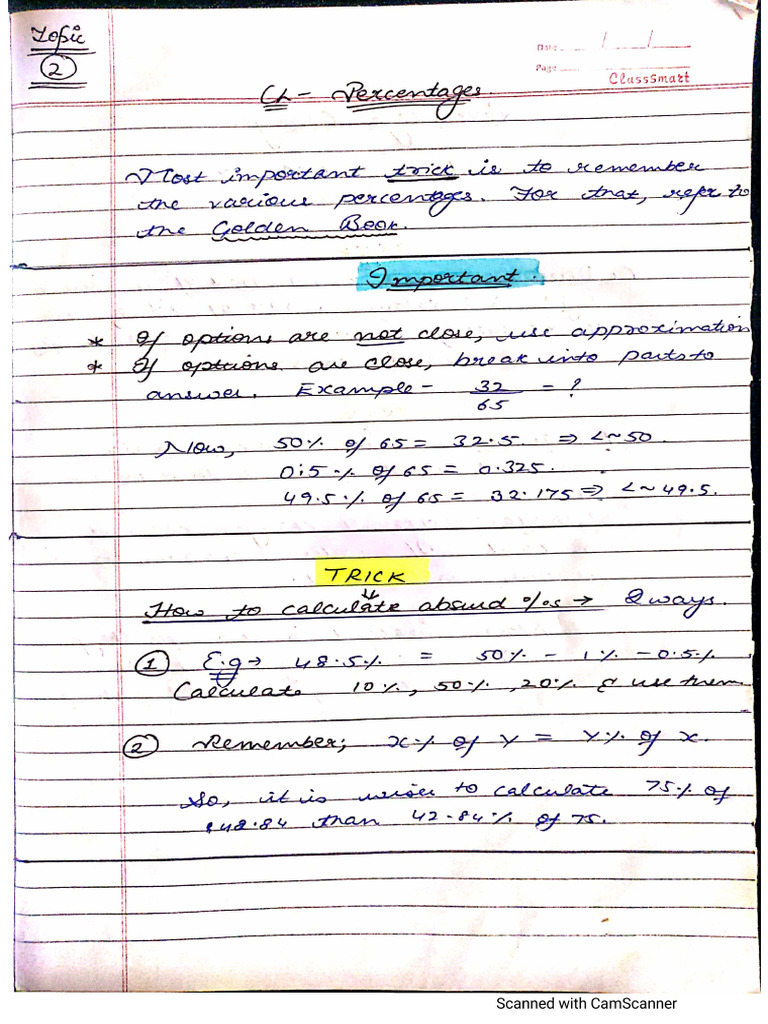 Topic
2
Date
Page
ClassSmart
Ch - Percentages.
Most important trick is to remember
the various percentages. For that, refer to
the Golden Book.
Important.
* If options are not close, use approximation
* If options are close, break into parts to
answer. Example - 32/65 = ?
Now, 50% of 65 = 32.5 ⇒ <~50.
0.5% of 65 = 0.325.
49.5% of 65 = 32.175 ⇒ <~49.5.
TRICK
How to calculate absurd %s → 2 ways.
1 E.g → 48.5% = 50% - 1% - 0.5%.
Calculate 10%, 50%, 20% & use them
2 Remember; x% of y = y% of x.
So, it is wiser to calculate 75% of
42.84 than 42.84% of 75.
Scanned with CamScanner